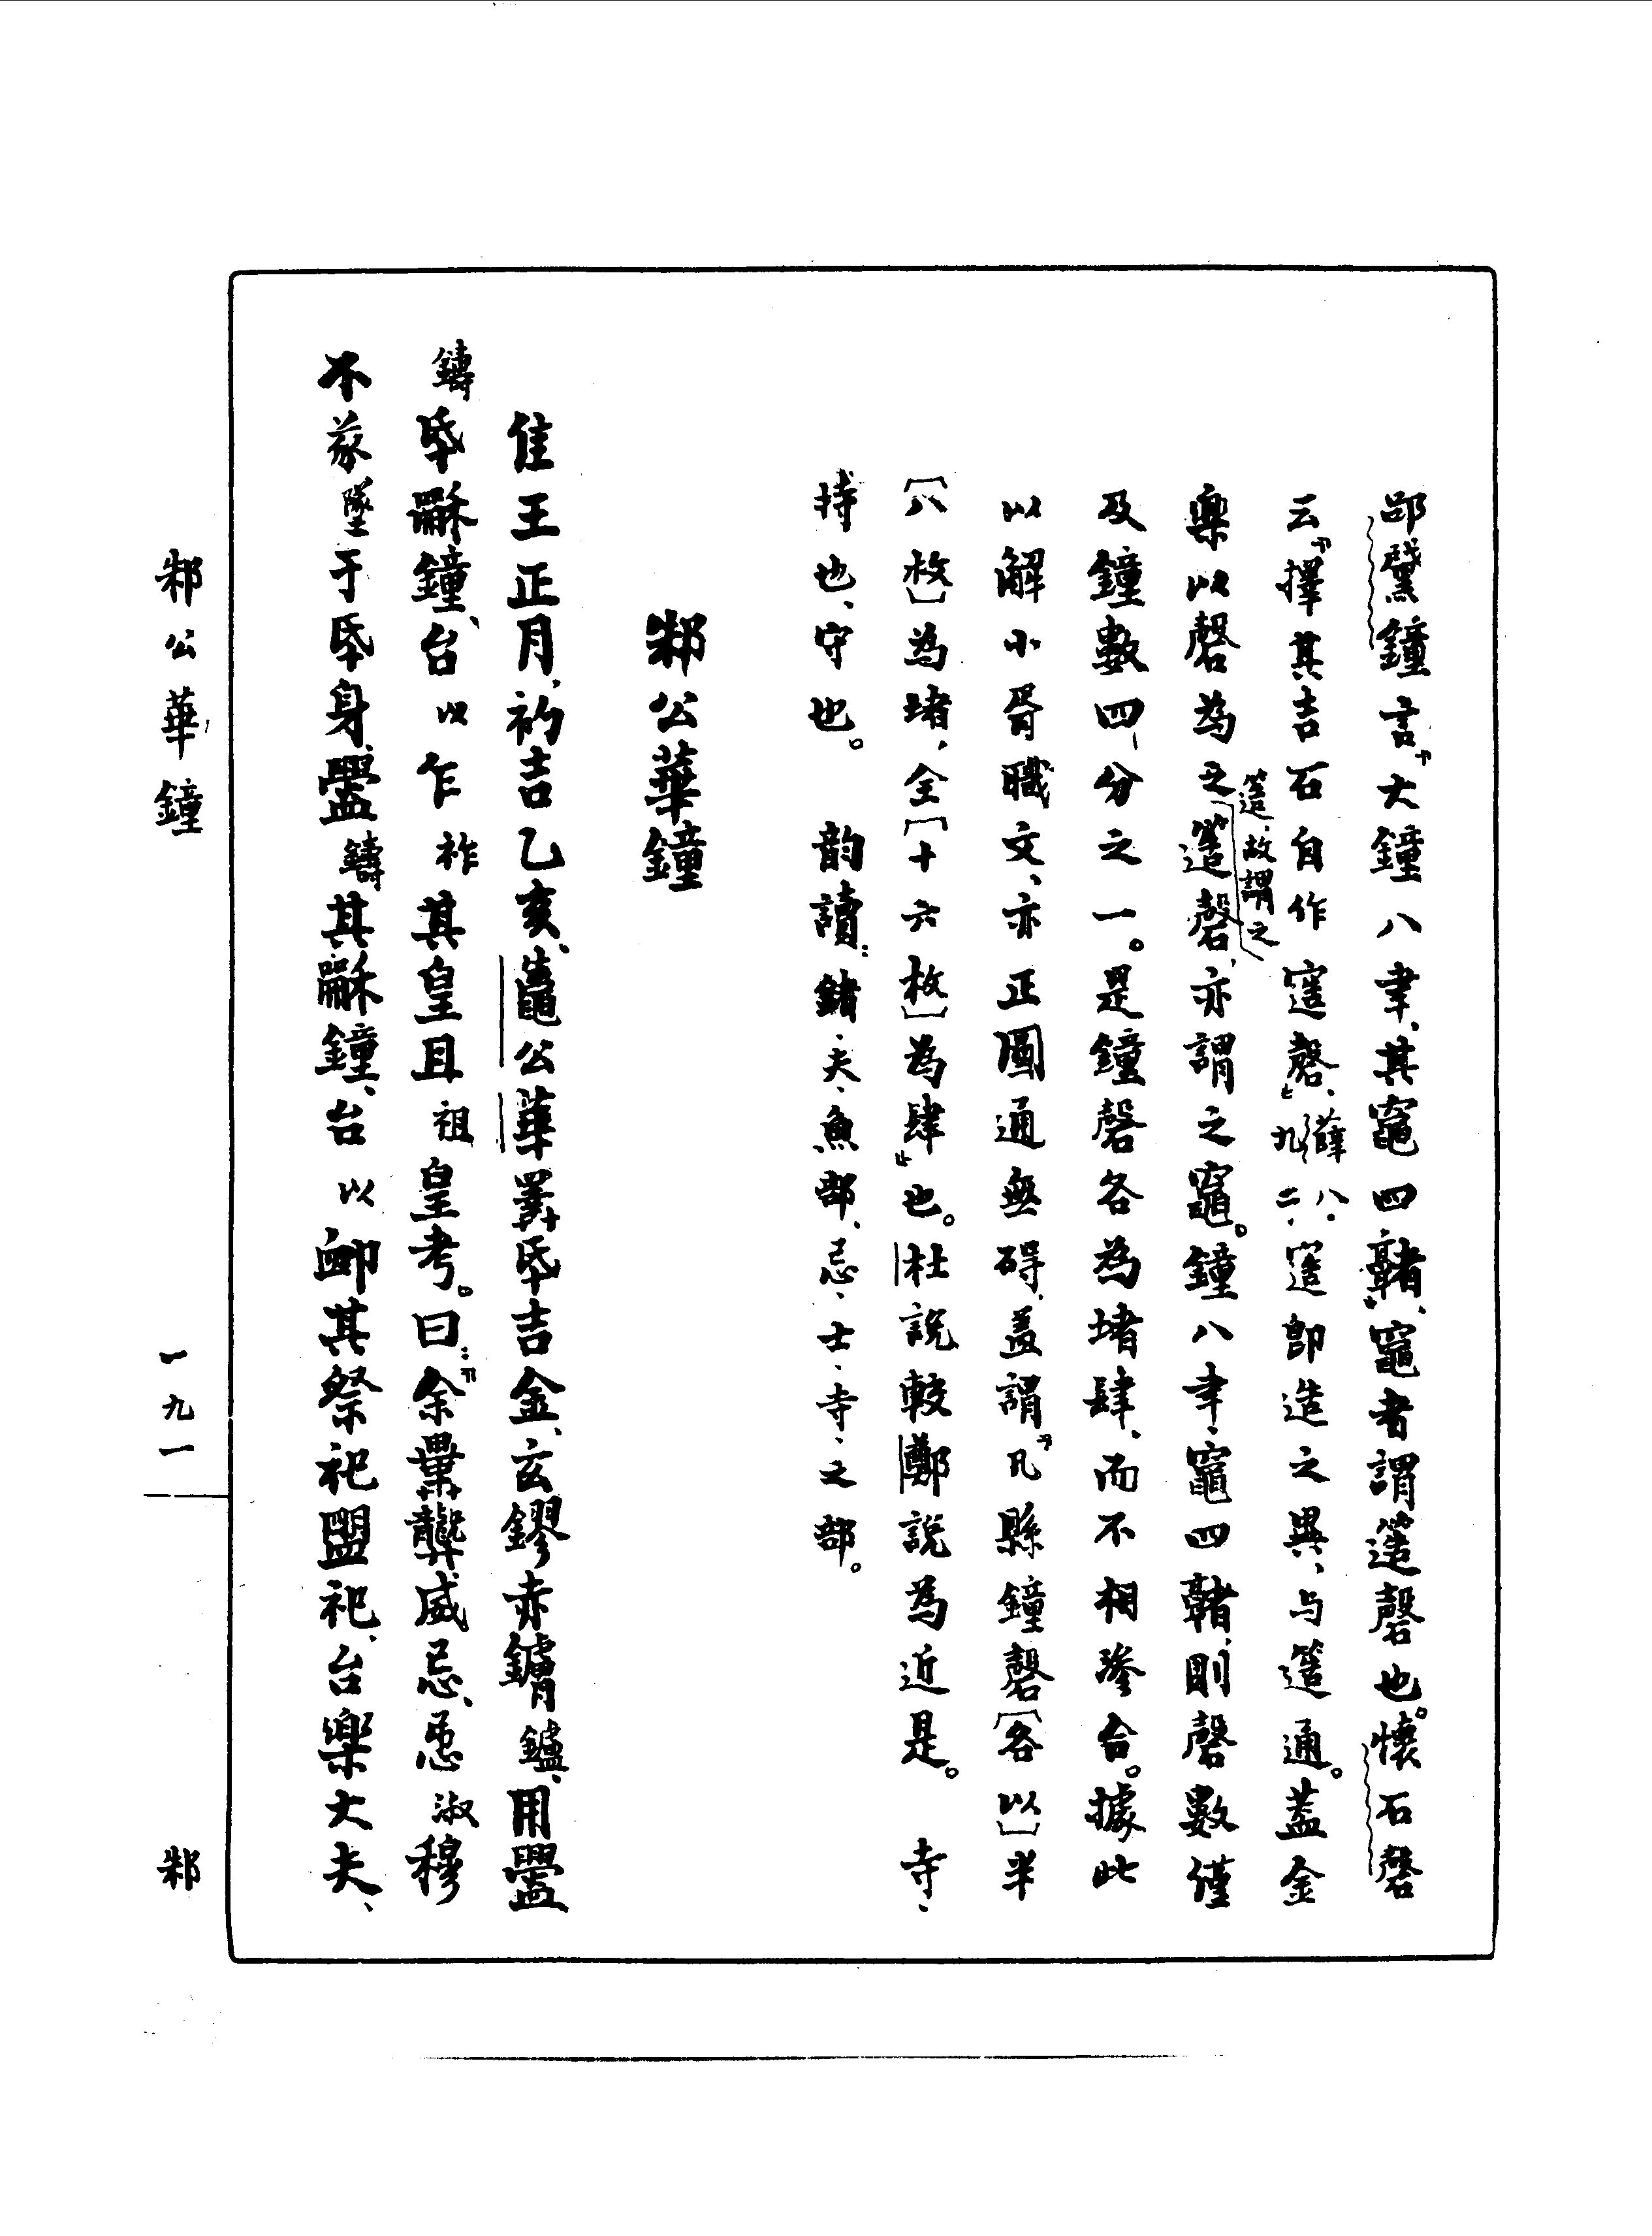 邵黛鐘言『大鐘八聿、其竈四𩫨』、竈者謂簉磬也。懷石磬
云『擇其吉石自作寚磬』、薛八・九二、寚即造之異、与簉通。蓋金
樂以磬為之簉、故謂之簉磬、亦謂之竈。鐘八聿、竈四𩫨、則磬數僅
及鐘數四分之一。是鐘磬各為堵肆、而不相摻合。據此
以解小胥職文、亦正圓通無碍、蓋謂『凡縣鐘磬〔各以〕半
〔八枚〕為堵、全〔十六枚〕為肆』也。杜說較鄭說為近是。 寺、
持也、守也。 韵讀：鍺、夫、魚部、忌、士、寺、之部。
邾公華鐘
隹王正月、初吉乙亥、鼄公華𢍰氒吉金、玄鏐赤鏞鑪、用𥁰
鑄氒龢鐘、台以乍祚其皇且祖皇考。曰：『余畢龏威忌、惄淑穆
不㒸墜于氒身、𥁰鑄其龢鐘、台以卹其祭祀盟祀、台樂大夫、
邾公華鐘 一九一 邾